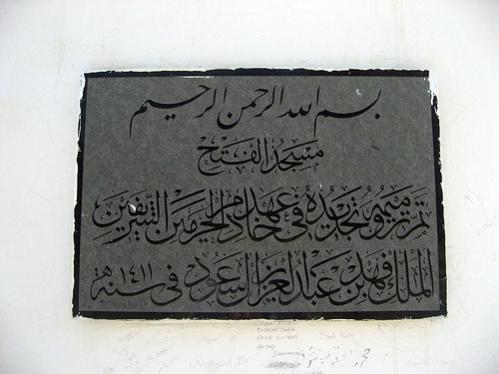 بسم الله الرحمن الرحيم
مسجد الفتح
تم ترميمه وتجديده في عهد خادم الحرمين الشريفين
الملك فهد بن عبد العزيز السعود في سنة ١٤١١ هـ